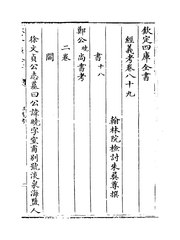 欽定四庫全書
經義考卷八十九
翰林院檢討朱彝尊撰
書十八
鄭公曉尚書考
二卷
闕
徐文貞公志墓曰公諱曉字窒甫别號淡泉海鹽人